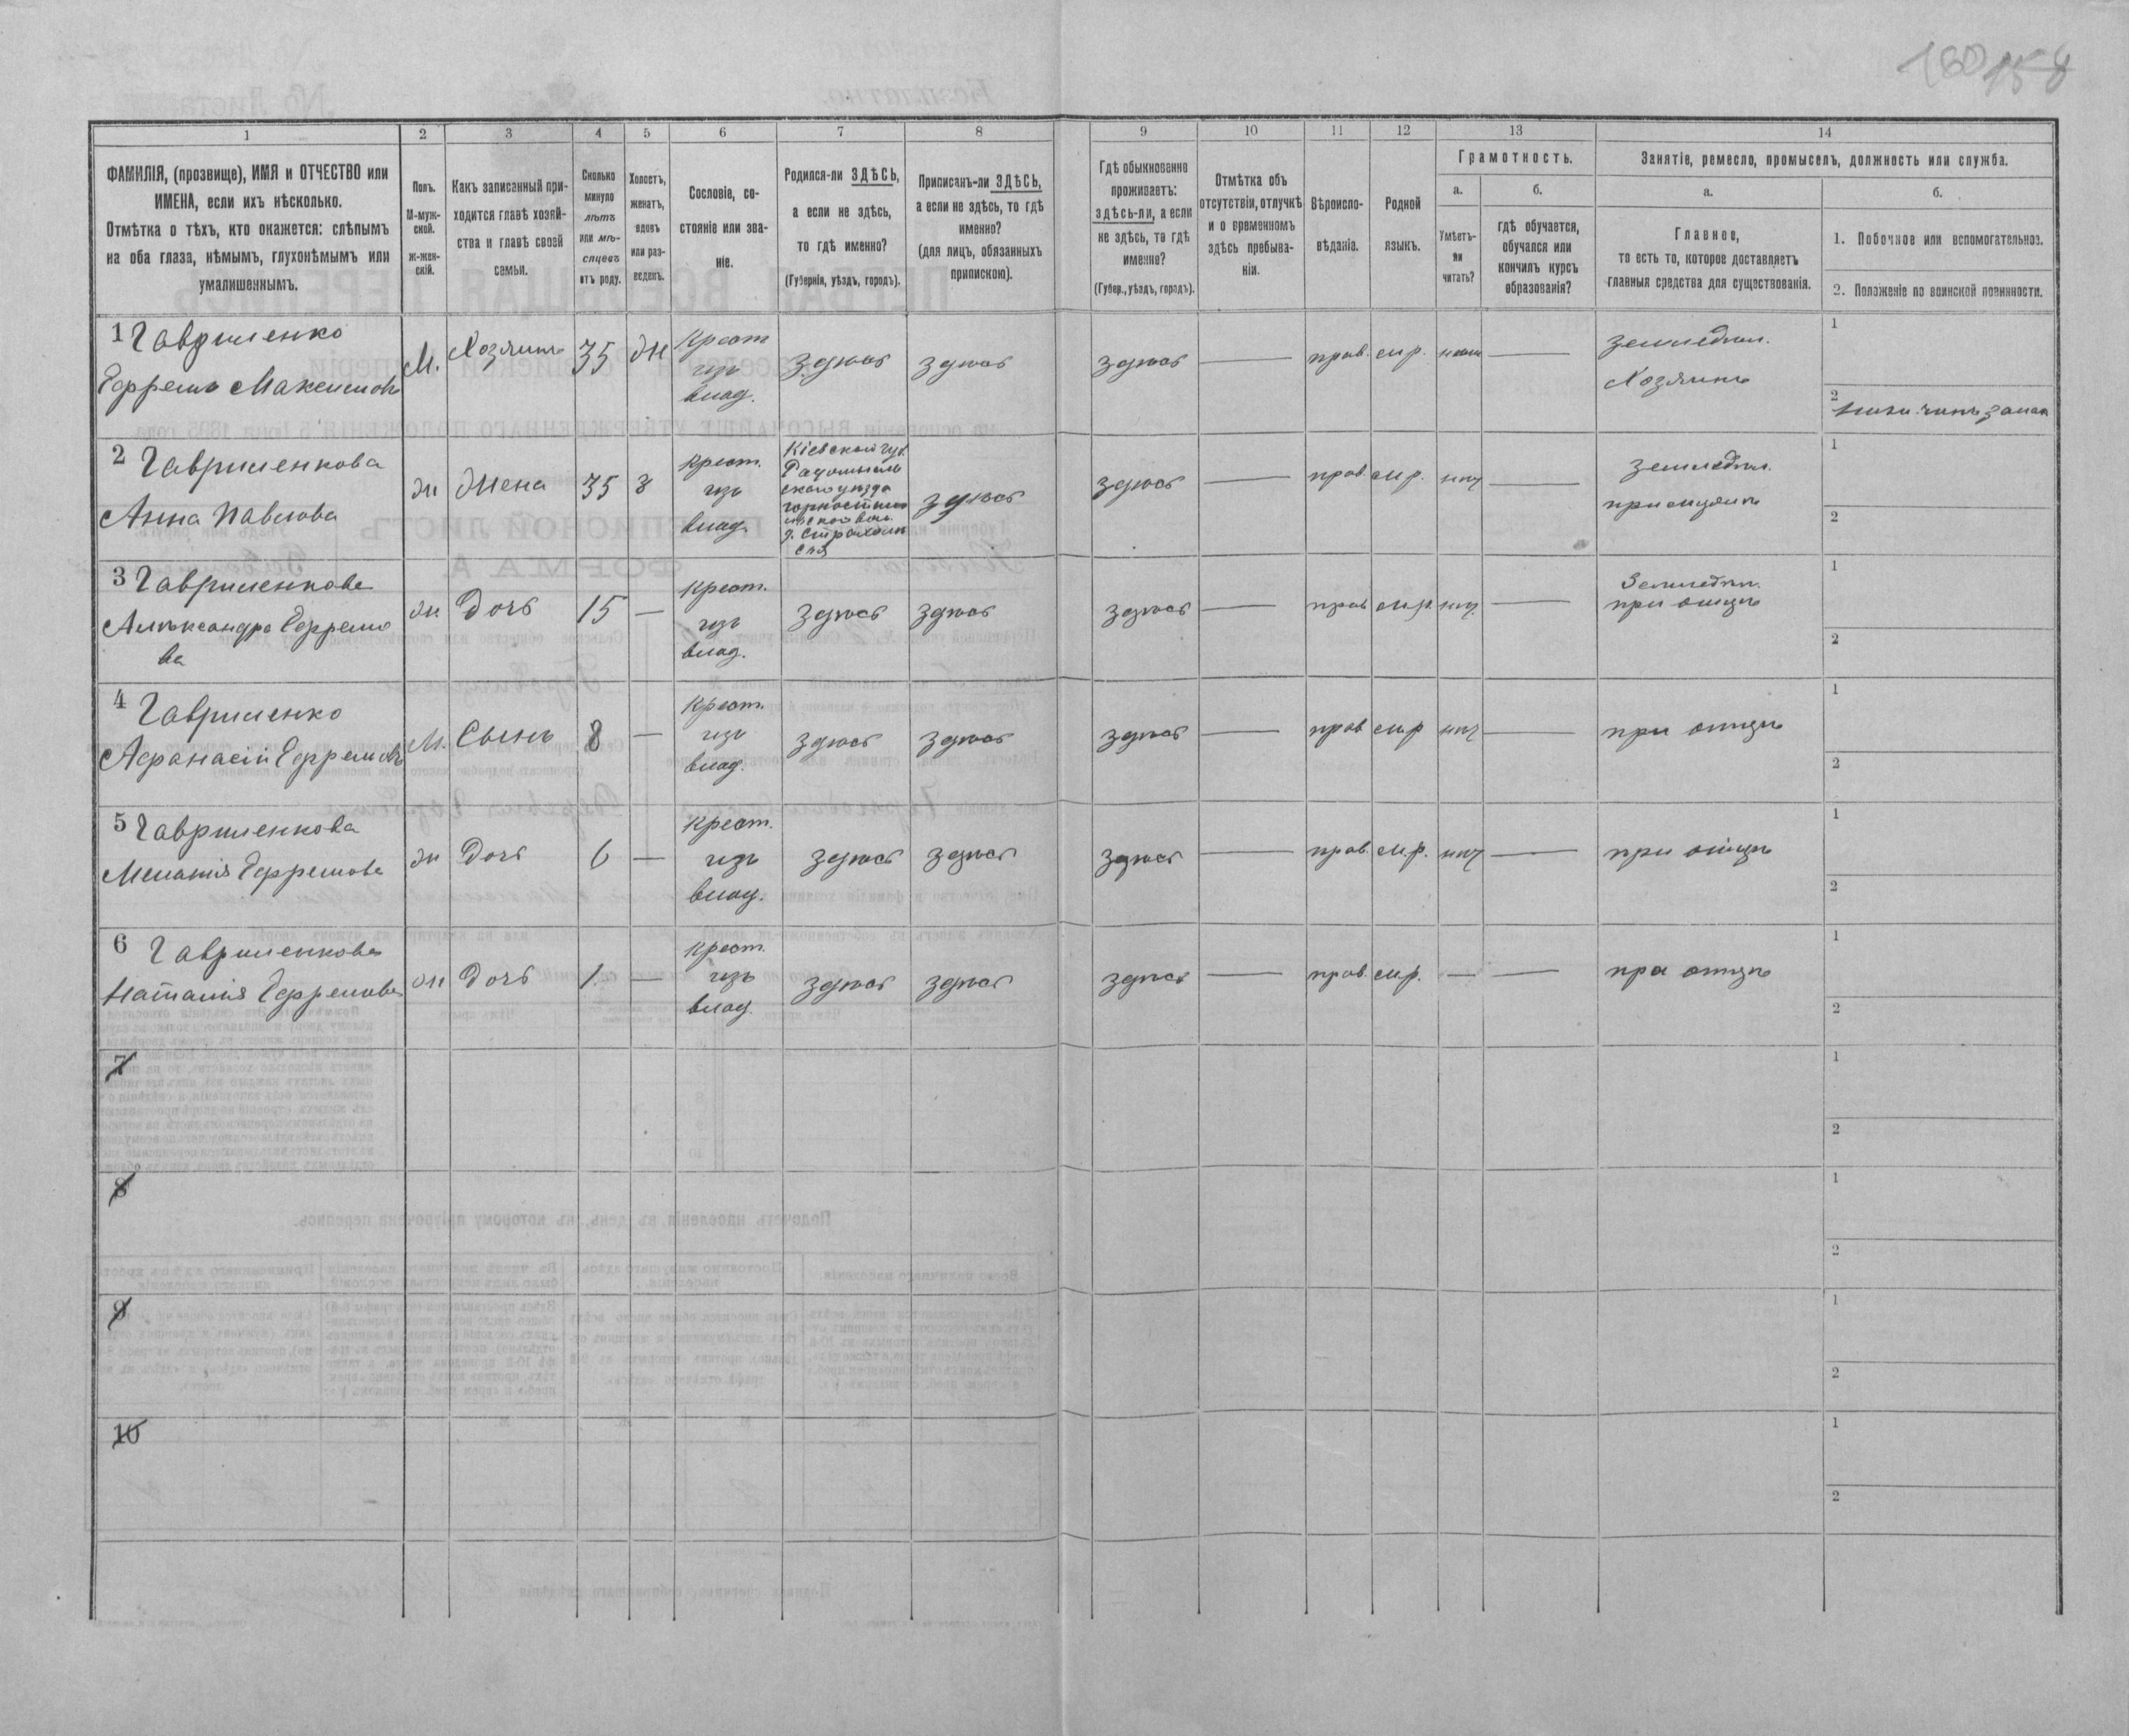 160 158
1 2 3 4 5 6 7 8 9 10 11 12 13 14
ФАМИЛІЯ, (прозвище), ИМЯ и ОТЧЕСТВО или
ИМЕНА, если ихъ нѣсколько.
Отмѣтка о тѣхъ, кто окажется: слѣпымъ
на оба глаза, нѣмымъ, глухонѣмымъ или
умалишеннымъ.
Полъ.
М-муж-
ской.
ж-жен-
скій.
Какъ записанный при-
ходится главѣ хозяй-
ства и главѣ своей
семьи.
Сколько
минуло
лѣтъ
или мѣ-
сяцевъ
отъ роду.
Холостъ,
женатъ,
вдовъ
или раз-
веденъ.
Сословіе, со-
стояніе или зва-
ніе.
Родился-ли ЗДѢСЬ,
а если не здѣсь,
то гдѣ именно?
(Губернія, уѣздъ, городъ).
Приписанъ-ли ЗДѢСЬ,
а если не здѣсь, то гдѣ
именно?
(для лицъ, обязанныхъ
припискою).
Гдѣ обыкновенно
проживаетъ:
здѣсь-ли, а если
не здѣсь, то гдѣ
именно?
(Губер., уѣздъ, городъ).
Отмѣтка объ
отсутствіи, отлучкѣ
и о временномъ
здѣсь пребыва-
ніи.
Вѣроиспо-
вѣданіе.
Родной
языкъ.
Грамотность.
а.
Умѣетъ-
ли
читать?
б.
гдѣ обучается,
обучался или
кончилъ курсъ
образованія?
Занятіе, ремесло, промыселъ, должность или служба.
а.
Главное,
то есть то, которое доставляетъ
главныя средства для существованія.
б.
1. Побочное или вспомогательное.
2. Положеніе по воинской повинности.
1 Гавриленко
Ефремъ Максимовъ
М.
Хозяинъ
35
Ж
Крест
изъ
влад.
здѣсь
здѣсь
здѣсь
—
прав.
мр.
—
земледѣл.
Хозяинъ
1
2
2 Гавриленкова
Анна Павлова
ж
Жена
35
з
Крест.
изъ
влад.
Кіевской губ.
Радомысль
скаго уѣзда
здѣсь
здѣсь
—
прав.
мр.
нѣт
—
земледѣл.
при мужѣ
1
2
3 Гавриленкова
Александра Ефремо
ва
ж
Дочь
15
—
Крест.
изъ
влад.
здѣсь
здѣсь
здѣсь
—
прав
мр.
нѣт
—
Земледѣл.
при отцѣ
1
2
4 Гавриленко
Афанасій Ефремовъ
М.
Сынъ
8
—
Крест.
изъ
влад.
здѣсь
здѣсь
здѣсь
—
прав
мр
нѣт
—
при отцѣ
1
2
5 Гавриленкова
Меланія Ефремова
ж
Дочь
6
—
Крест.
изъ
влад.
здѣсь
здѣсь
здѣсь
—
прав.
мр.
нѣт
—
при отцѣ
1
2
6 Гавриленкова
Наталія Ефремова
ж
Дочь
1
—
Крест.
изъ
влад.
здѣсь
здѣсь
здѣсь
—
прав.
мр.
—
—
при отцѣ
1
2
7
1
2
8
1
2
9
1
2
10
1
2